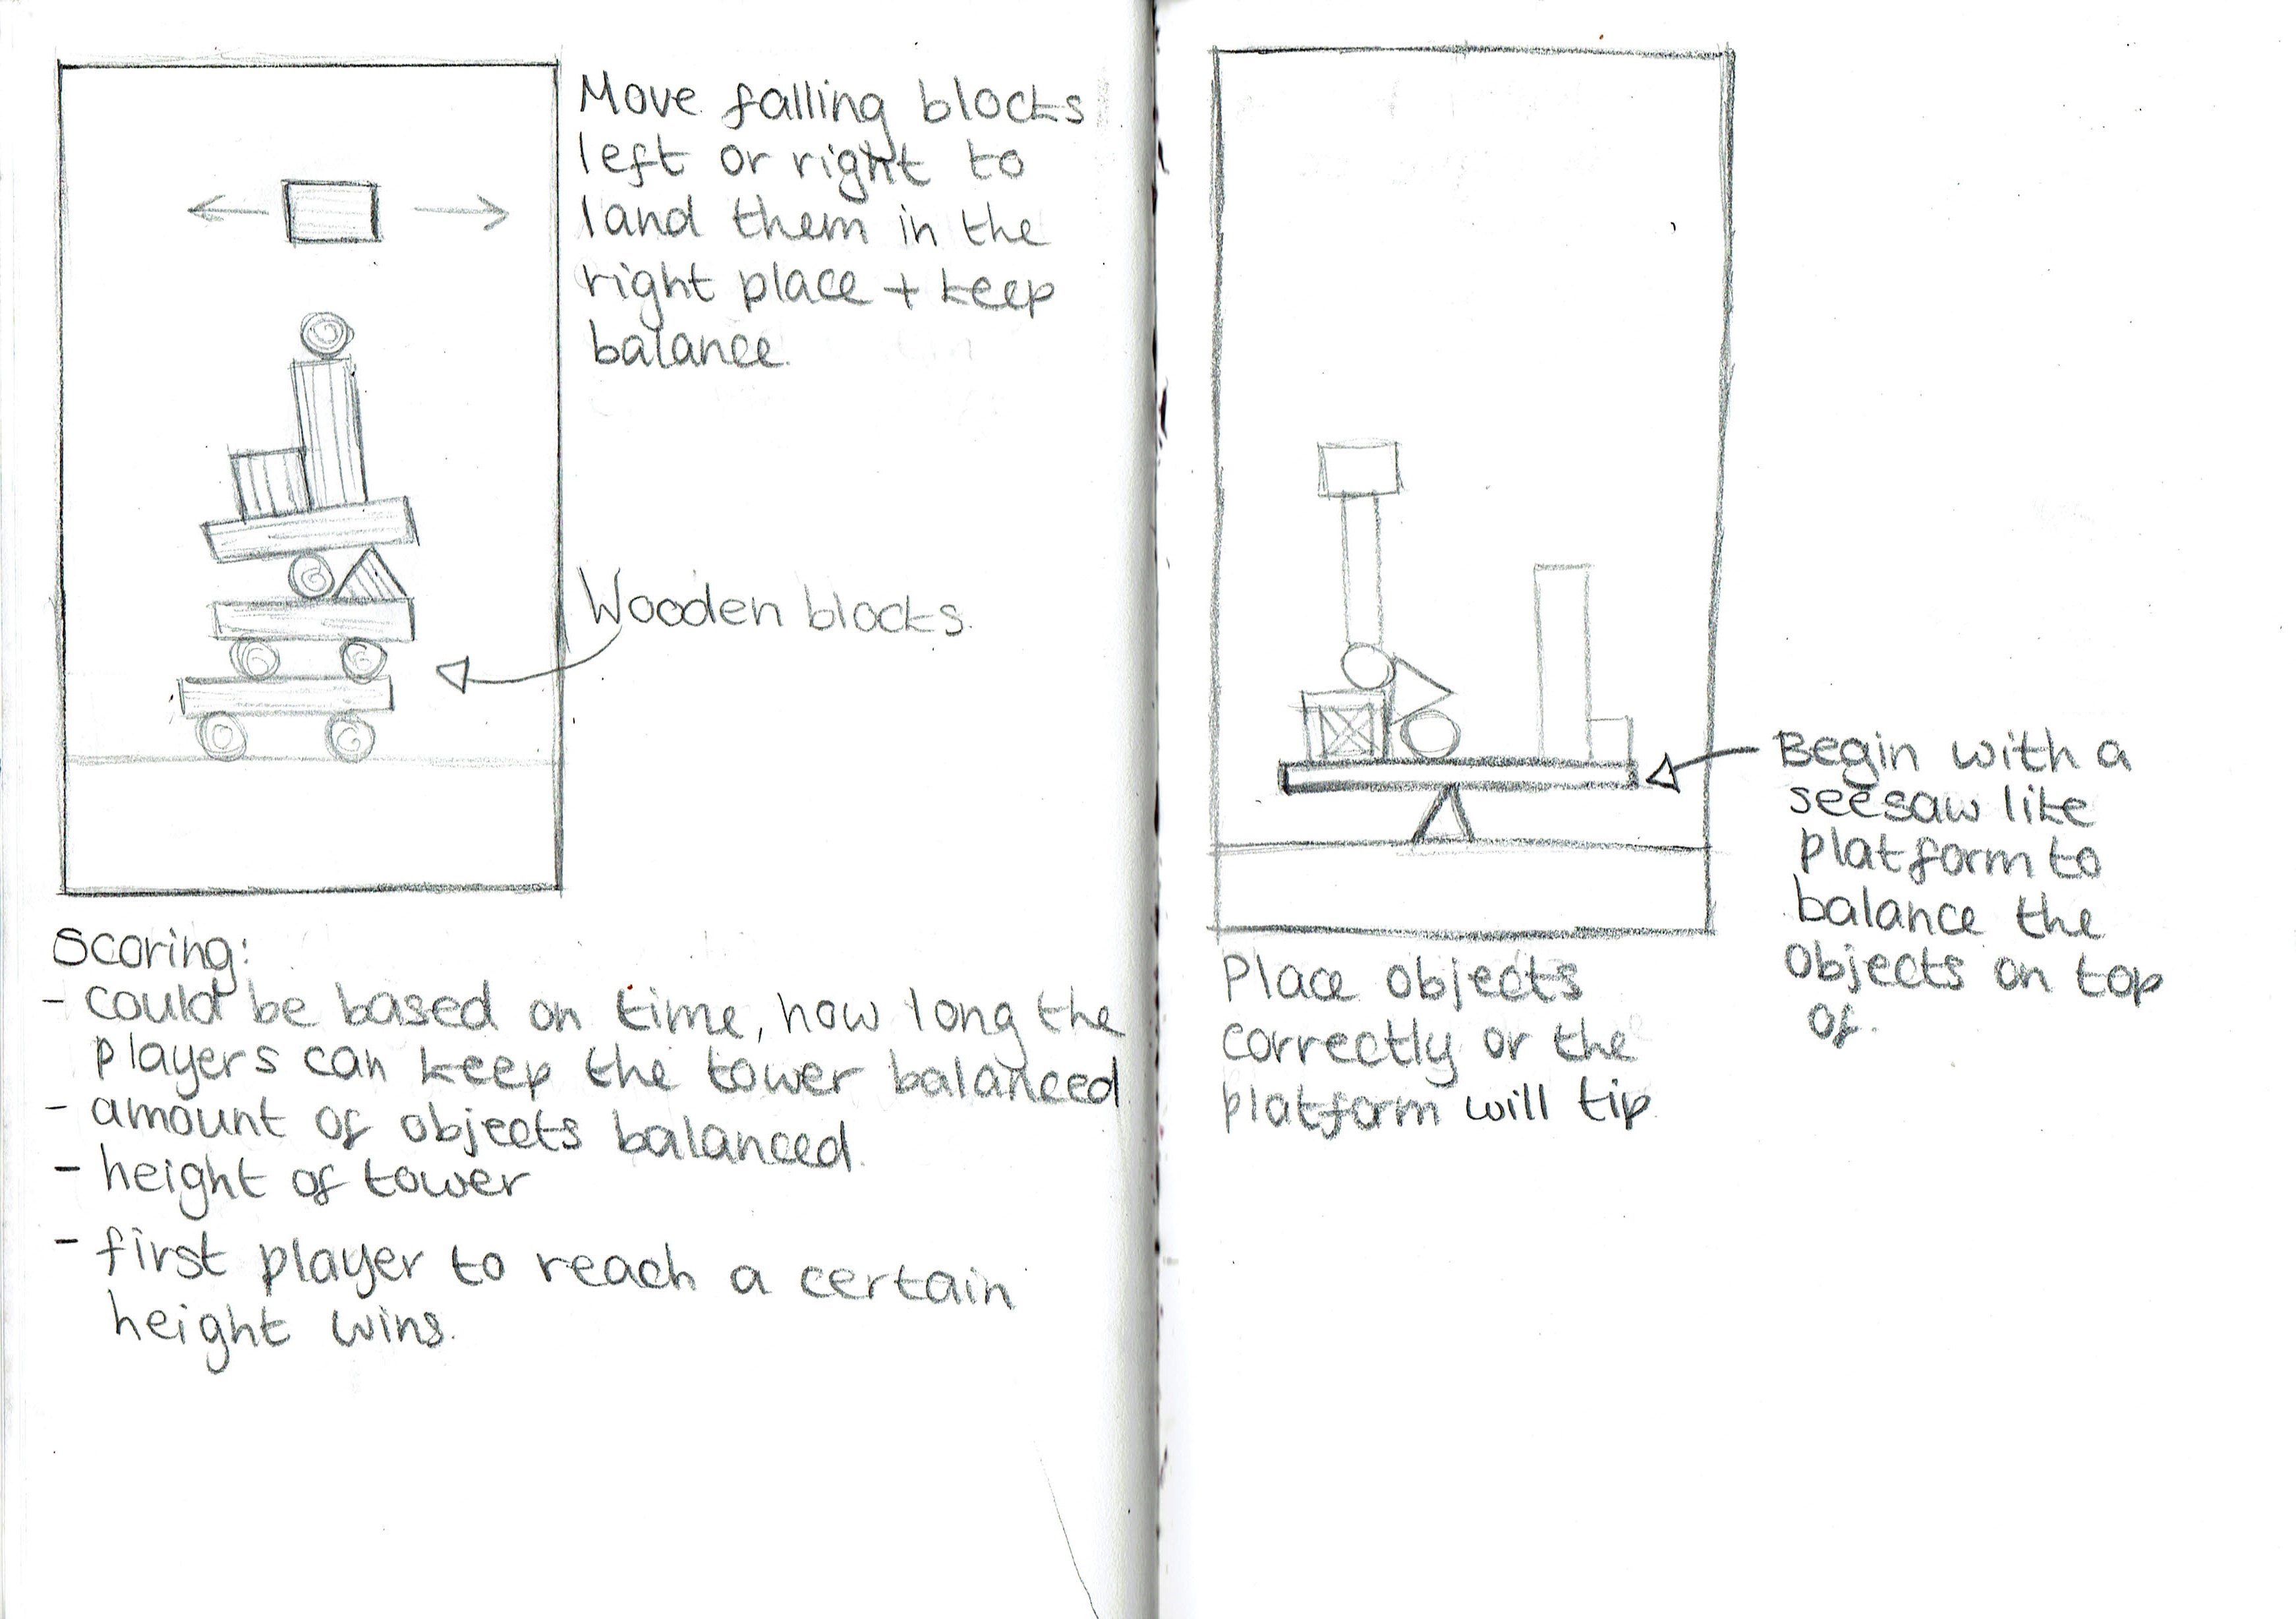 Move falling blocks
left or right to
land them in the
right place + keep
balance.
Wooden blocks.
Scoring:
- could be based on time, how long the
players can keep the tower balanced
- amount of objects balanced.
- height of tower
- first player to reach a certain
height wins.
Begin with a
seesaw like
platform to
balance the
objects on top
of.
Place objects
correctly or the
platform will tip